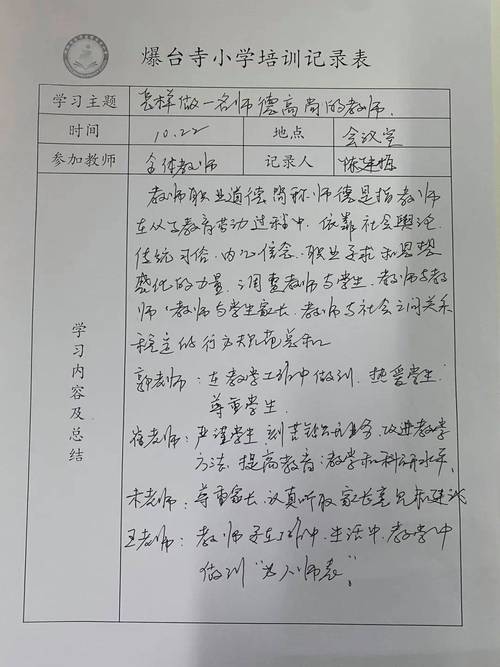 爆台寺小学培训记录表
学习主题 怎样做一名师德高尚的教师.
时间 10.22 地点 会议室
参加教师 全体教师 记录人 陈建
学习内容及总结
教师职业道德简称师德是指教师
在从事教育劳动过程中.依靠社会舆论
传统习俗.内心信念.职业予求和思想
文化的力量.调整教师与学生.教师与教
师、教师与学生家长.教师与社会之间关系
和稳定的行为规范总和
郭老师：在教学工作中做到.热爱学生
尊重学生.
崔老师：严谨学生.刻苦钻研业务.改进教学
方法.提高教育.教学和科研水平.
朱老师：尊重家长.认真听取家长意见和建议
王老师：教师在工作中.生活中.教学中
做到“为人师表”.